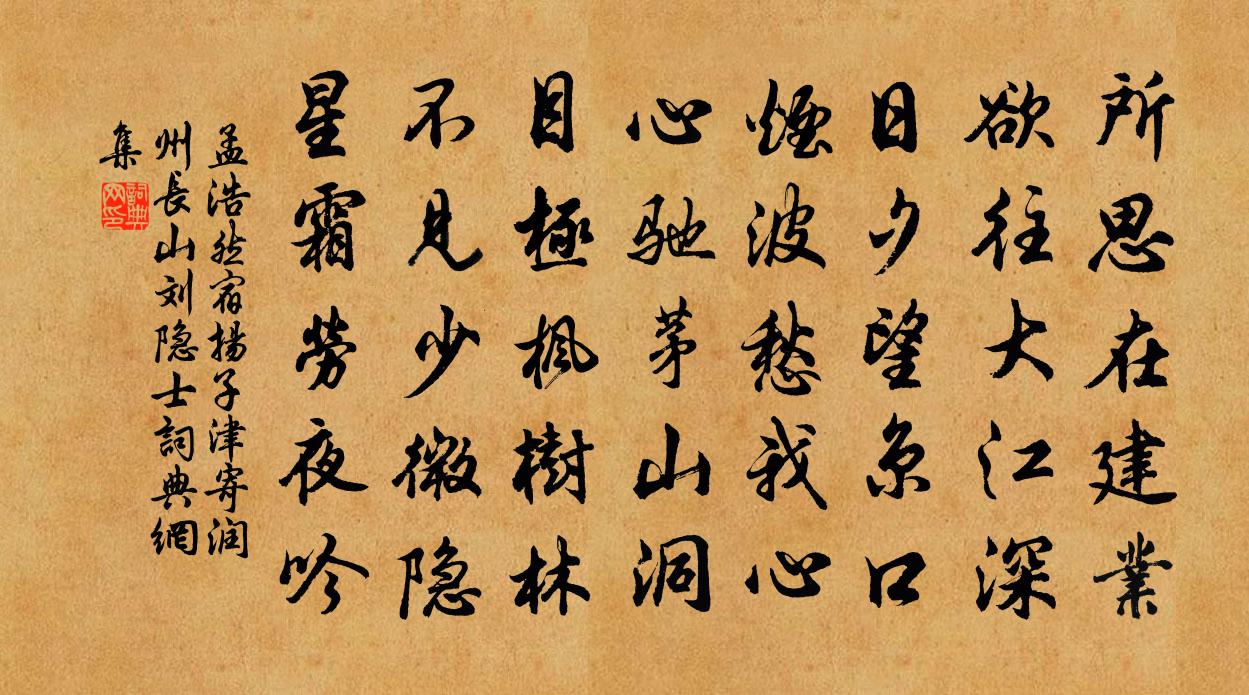 所思在建業
欲往大江深
日夕望京口
煙波愁我心
心馳茅山洞
目極楓樹林
不見少微隐
星霜勞夜吟
孟浩然宿揚子津寄润
州長山刘隐士詞典網
集
詞典网印